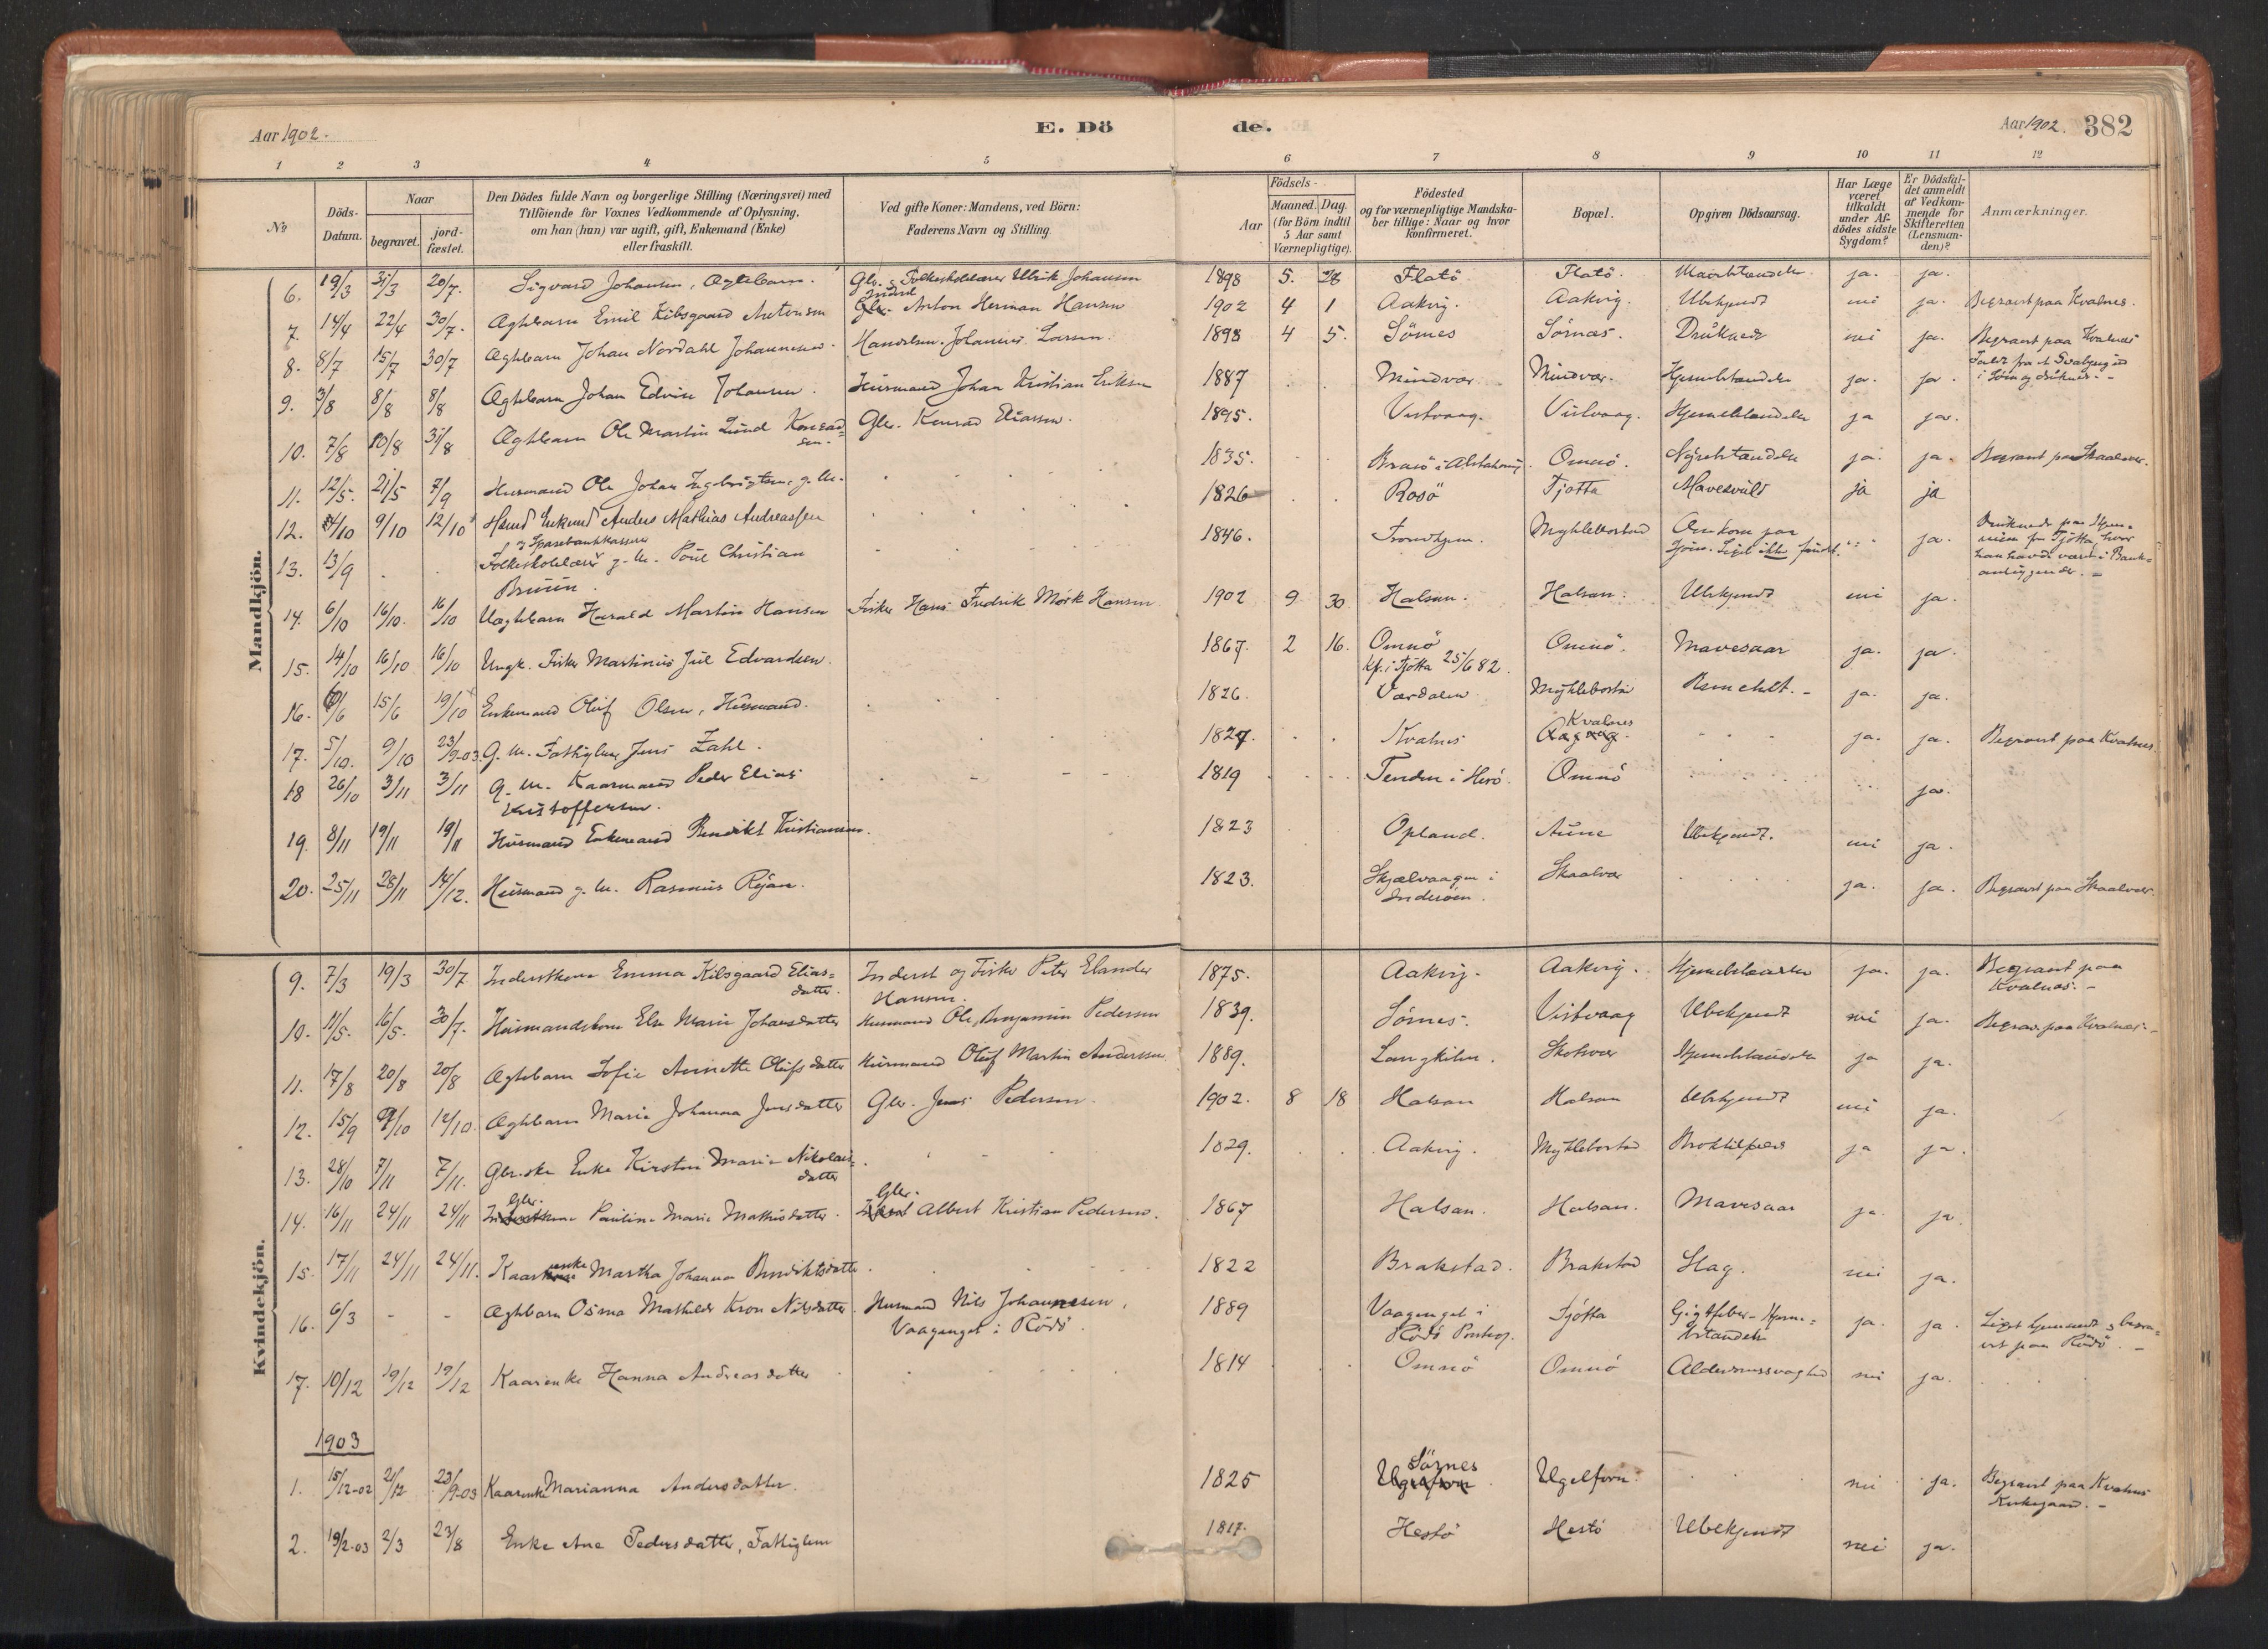 Aar 1902.
E. Dö
de.
Aar 1902.
382
1 2 3 4 5 6 7 8 9 10 11 12
No
Döds-
Datum.
Naar
begravet.
jord-
fæstet.
Den Dödes fulde Navn og borgerlige Stilling (Næringsvei) med
Tilföiende for Voxnes Vedkommende af Oplysning,
om han (hun) var ugift, gift, Enkemand (Enke)
eller fraskilt.
Ved gifte Koner: Mandens, ved Börn:
Faderens Navn og Stilling.
Födsels-
Aar
Maaned.
Dag.
(for Börn indtil
5 Aar samt
Værnepligtige).
Födested
og for værnepligtige Mandska-
ber tillige: Naar og hvor
konfirmeret.
Bopæl.
Opgiven Dödsaarsag.
Har Læge
været
tilkaldt
under Af-
dödes sidste
Sygdom?
Er Dödsfal-
det anmeldt
af Vedkom-
mende for
Skifteretten
(Lensman-
den)?
Anmærkninger.
Mandkjön.
6. 19/3 31/3 20/7. Sigvard Johansen, Ægtebarn. Gbr. & Folkeskolelærer Ulrik Johansen 1898 5. Flatö. Flatö. ja. ja.
7. 14/4 22/4 30/7. Ægtebarn Emil Kibsgaard Antonsen Inderst Anton Herman Hansen 1902 4 1 Aakvig. Aakvig. Ubekjendt nei ja. Begravet paa Kvalnes.
8. 8/7 15/7 30/7 Ægtebarn Johan Nordahl Johannesen. Handelsm. Johannes Larsen. 1898 4 5. Sörnes Sörnæs. Druknede nei ja. Begravet paa Kvalnæs
i Söen og druknede. -
9. 3/8 8/8 8/8 Ægtebarn Johan Edvin Johansen. Husmand Johan Kristian Eriksen 1887 Mindvær. Mindvær. Hjernebetændelse ja. ja.
10. 7/8 10/8 31/8 Ægtebarn Ole Martin Lund Konrad=
sen. Gbr. Konrad Eliassen. 1895. Vistvaag. Vistvaag. Hjernebetændelse ja ja.
11. 12/5. 21/5 7/9 Husmand Ole Johan Ingebrigtsen, g. M. 1835. i Alstahoug. Omnö. Nyrebetændelse ja. ja. Begravet paa Skaalvær.
12. 4/10 9/10 12/10 Husmd Enkemd Anders Mathias Andreassen 1826 Rosö Tjötta Mavesvulst ja ja
13. 13/9 og Sparebankkasserer
Folkeskolelærer g. M. Poul Christian
Bruun. 1846. Trondhjem. Myklebostad Omkom paa
Sjöen. Liget ikke fundet. ja. Druknede paa Hjem=
reisen fra Tjötta, hvor
han havde været i Bank=
anliggender. -
14. 6/10 16/10. 16/10 Uægtebarn Harald Martin Hansen Fisker Hans Fredrik Mörk Hansen 1902 9 30 Halsan. Halsan. Ubekjendt nei ja.
15. 14/10 16/10 16/10 Ungk. Fisker Martinius Jul Edvardsen. 1867. 2 16. Omnö
Kf. i Tjötta 25/6 82. Omnö. Mavesaar ja. ja.
16. 15/6 19/10 Enkemand Oluf Olsen, Husmand. 1826. Værdalen Myklebostad ja. ja.
17. 5/10. 9/10 23/9-03. G. M. Fattiglem Jens Zahl. 1827. Kvalnes Kvalnes ja. ja. Begravet paa Kvalnes.
18 26/10 3/11 3/11 G. M. Kaarmand Peder Elias
Kristoffersen. 1819 Tenden i Herö. Omnö ja.
19. 8/11 19/11 19/11 Husmand Enkemand Benedikt Kristiansen. 1823 Opland. Aune Ubekjendt. nei ja.
20. 25/11 28/11 14/12. Husmand g. M. Rasmus Röjan. 1823. Skjælvaagen i
Inderöen. Skaalvær ja. ja. Begravet paa Skaalvær.
Kvindekjön.
9. 7/3 19/3 30/7 Inderstkone Emma Kilsgaard Elias=
datter. Inderst og Fisker Peter Elander
Hansen. 1875. Aakvig. Aakvig. ja. ja. Begravet paa
Kvalnæs. -
10. 11/5. 16/5. 30/7. Husmandskone Else Marie Johansdatter Husmand Ole Benjamin Pedersen 1839. Sörnes. Vistvaag Ubekjendt nei ja. Begrav. paa Kvalnæs. -
11. 17/8 20/8 20/8 Ægtebarn Sofie Annette Olufsdatter Husmand Oluf Martin Anderssen. 1889. Skotsvær Hjernebetændelse ja ja.
12. 15/9 12/10. Ægtebarn Marie Johanna Jensdatter Gbr. Jens Pedersen. 1902. 8 18 Halsan Halsan Ubekjendt nei ja.
13. 28/10 7/11 7/11. Gbr.ske Enke Kirsten Marie Nikolais=
datter 1829. Aakvig. Myklebostad Broktilfælde ja ja.
14. 16/11 24/11 24/11 Gbr.
Inderstkone Pauline Marie Mathisdatter. Gbr.
Inderst Albert Kristian Pedersen. 1867 Halsan. Halsan. Mavesaar ja. ja.
15. 17/11 24/11 24/11. Kaarenke Martha Johanna Benediktsdatter. 1822 Brakstad. Brakstad Slag. nei ja.
16. 6/3 - - Ægtebarn Osima Mathilde Kron Nilsdatter. Husmand Nils Johannesen,
Vaagenget i Rödö. 1889 Vaagenget i
Rödö Præstegj. Tjötta Gigtfeber - Hjerne=
betændelse ja. ja. Liget hjemsendt & begra=
vet paa Rödö. -
17. 10/12 19/12 19/12 Kaarenke Hanna Andreasdatter 1814 Omnö Omnö Alderdomssvaghed nei ja.
1903
1. 15/12-02 21/12 23/9-03 Kaarenke Marianna Andersdatter. 1825 Sörnes
Ugelfovn Ugelfovn. nei ja. Begravet paa Kvalnes
Kirkegaard. -
2. 19/2-03 2/3 23/8 Enke Ane Pedersdatter, Fattiglem 1817. Hestö Hestö Ubekjendt nei ja.